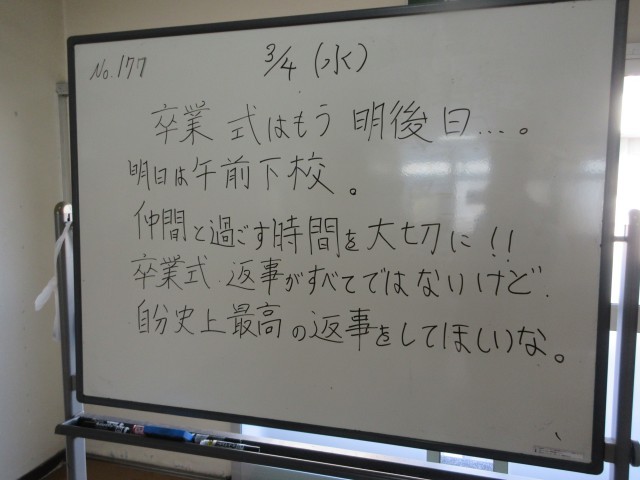 No.177
3/4 (水)
卒業式はもう明後日…。
明日は午前下校。
仲間と過ごす時間を大切に!!
卒業式 返事がすべてではないけど、
自分史上最高の返事をしてほしいな。